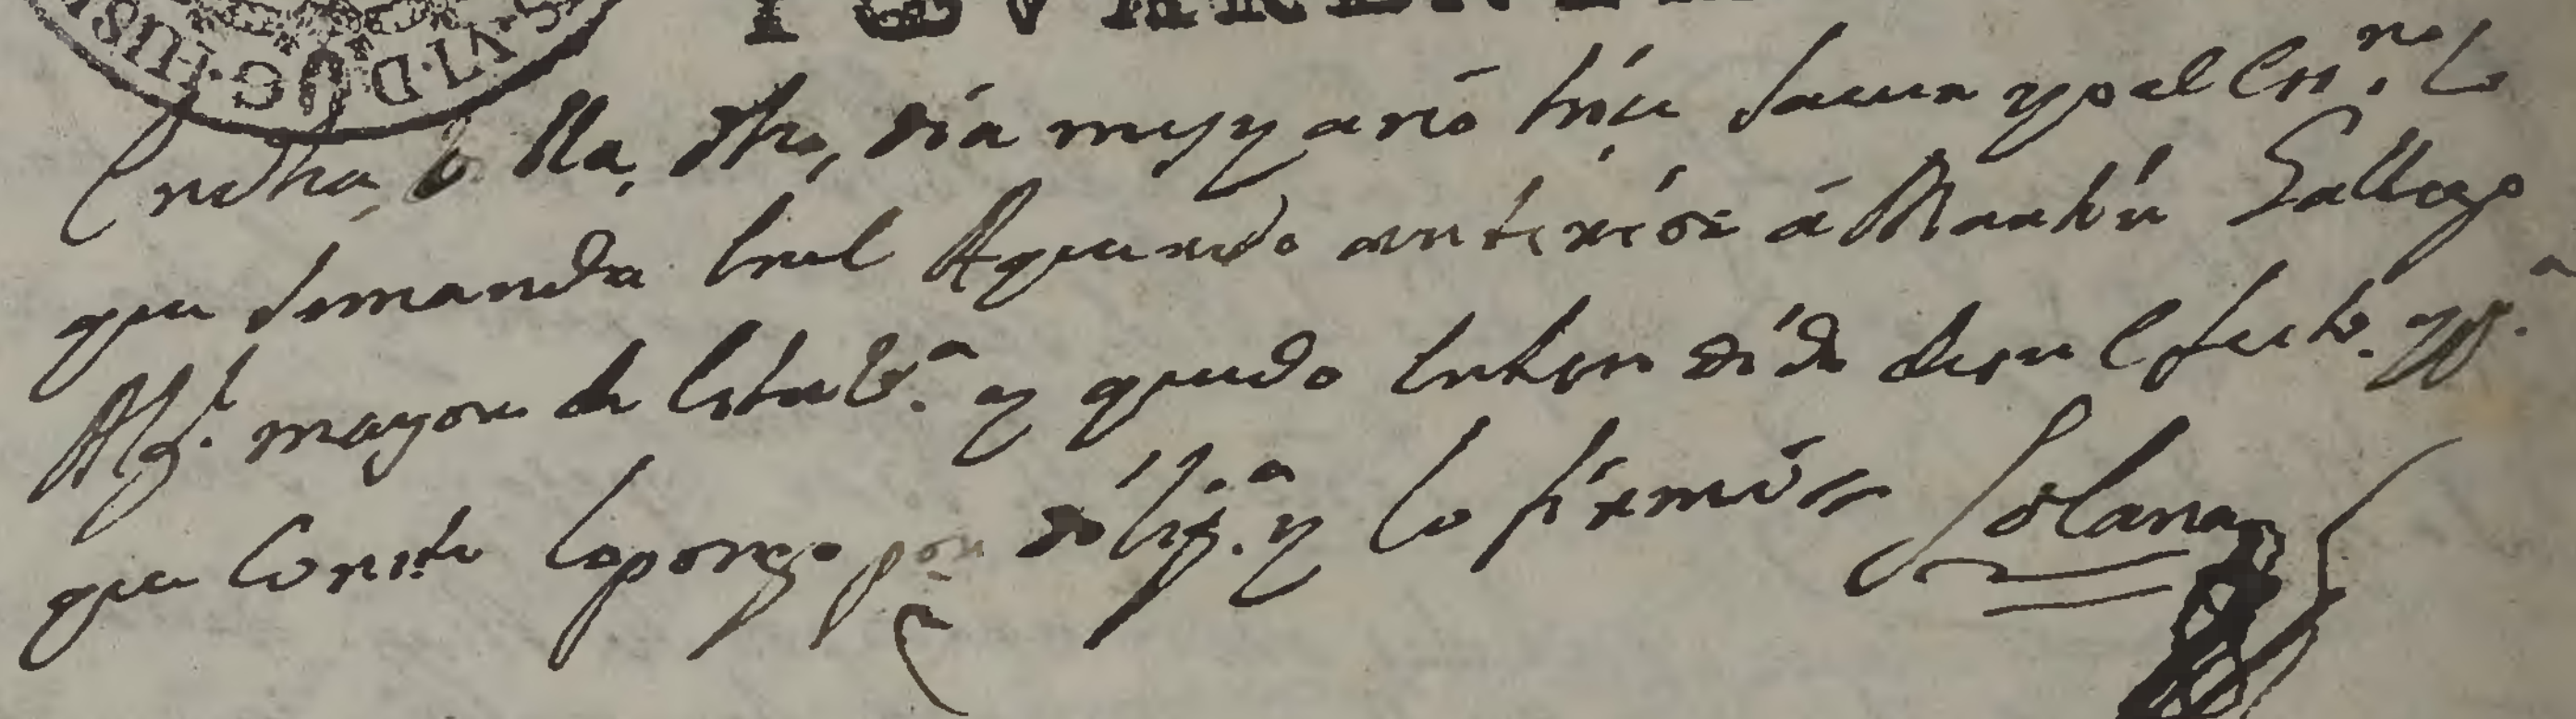 En dha, Villa, dho, dia mes y año hice saver yo el Essno lo
que demanda en el Aquerdo antezeor a Martin Gallego
Alg.l mayor de esta V.a y quedo entendido de su efecto. y p.a
que conste lo pongo por dilig.a y lo firmé =
Solana